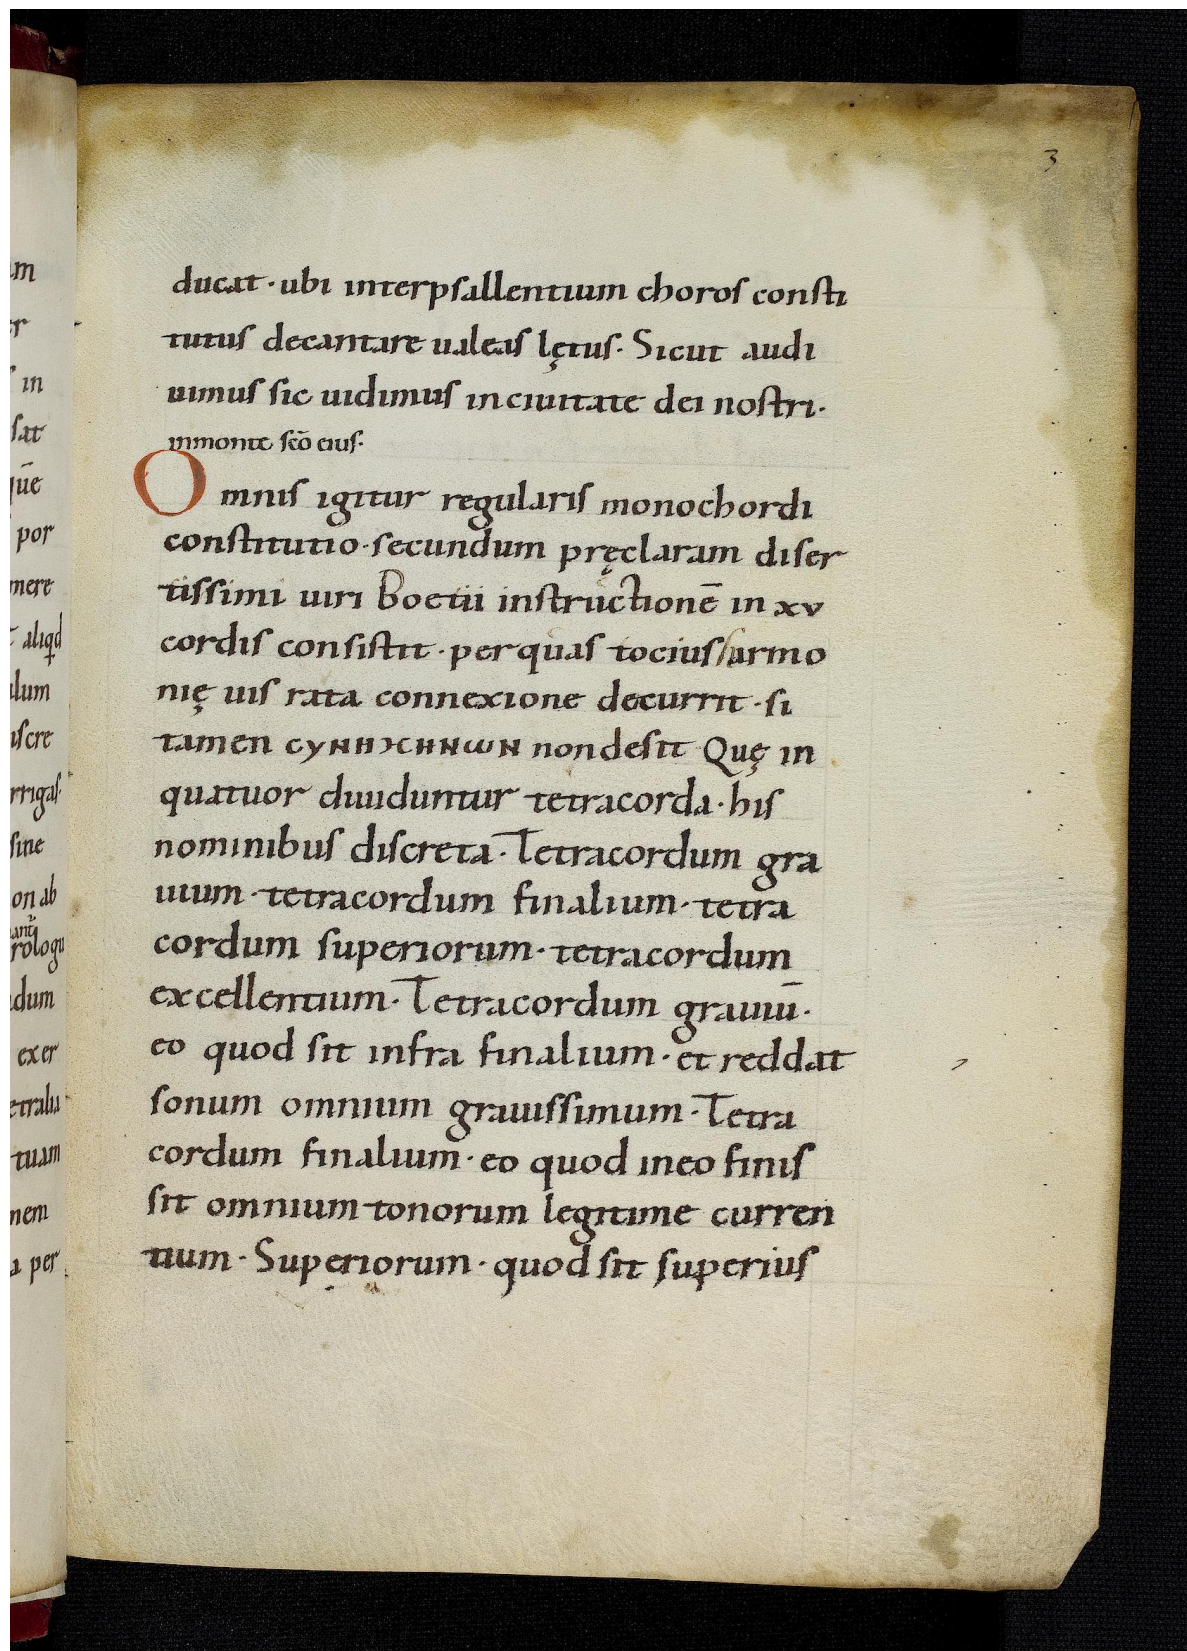 3
ducat · ubi inter psallentium choros consti
tutus decantare ualeas lętus · Sicut audi
uimus sic uidimus in ciuitate dei nostri ·
in monte scō eius ·
Omnis igitur regularis monochordi
constitutio · secundum pręclaram diser
tissimi uiri boetii instructionē in xv
cordis consistit · per quas tocius armo
nię uis rata connexione decurrit · si
tamen non desit Quę in
quatuor diuiduntur tetracorda · his
nominibus discreta · Tetracordum gra
uium · tetracordum finalium · tetra
cordum superiorum · tetracordum
excellentium · Tetracordum grauiū ·
eo quod sit infra finalium · et reddat
sonum omnium grauissimum · Tetra
cordum finalium · eo quod in eo finis
sit omnium tonorum legitime curren
tium · Superiorum · quod sit superius